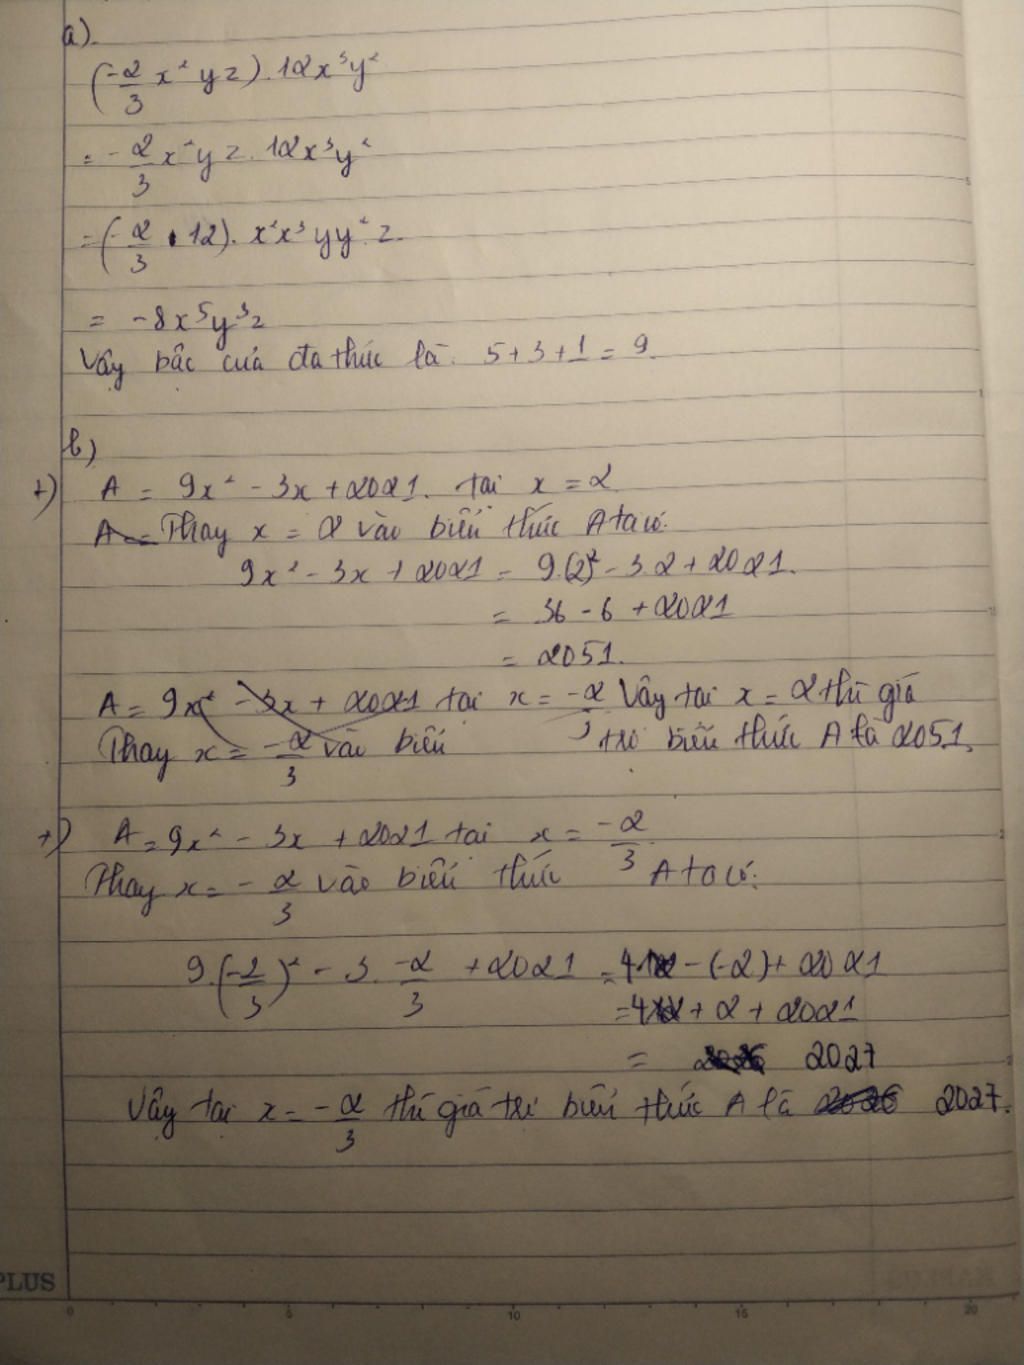 a).
(-2/3 x²yz).12x³y²
= -2/3 x²yz.12x³y²
= (-2/3 . 12). x²x³yy².z.
= -8x⁵y³z
Vậy bậc của đa thức là: 5+3+1=9.
b)
+) A = 9x² - 3x + 2021. tại x = 2
A = Thay x = 2 vào biểu thức A ta có:
9x² - 3x + 2021 = 9.(2)² - 3.2 + 2021.
= 36 - 6 + 2021
= 2051.
A = 9x² - 3x + 2021 tại x = -2/3 Vậy tại x = 2 thì giá
Thay x = -2/3 vào biểu trị biểu thức A là 2051.
+) A = 9x² - 3x + 2021 tại x = -2/3
Thay x = -2/3 vào biểu thức A ta có:
9.(-2/3)² - 3.-2/3 + 2021 = 4 - (-2) + 2021
= 4 + 2 + 2021
= 2026 2027
Vậy tại x = -2/3 thì giá trị biểu thức A là 2026 2027.
PLUS
0 5 10 15 20